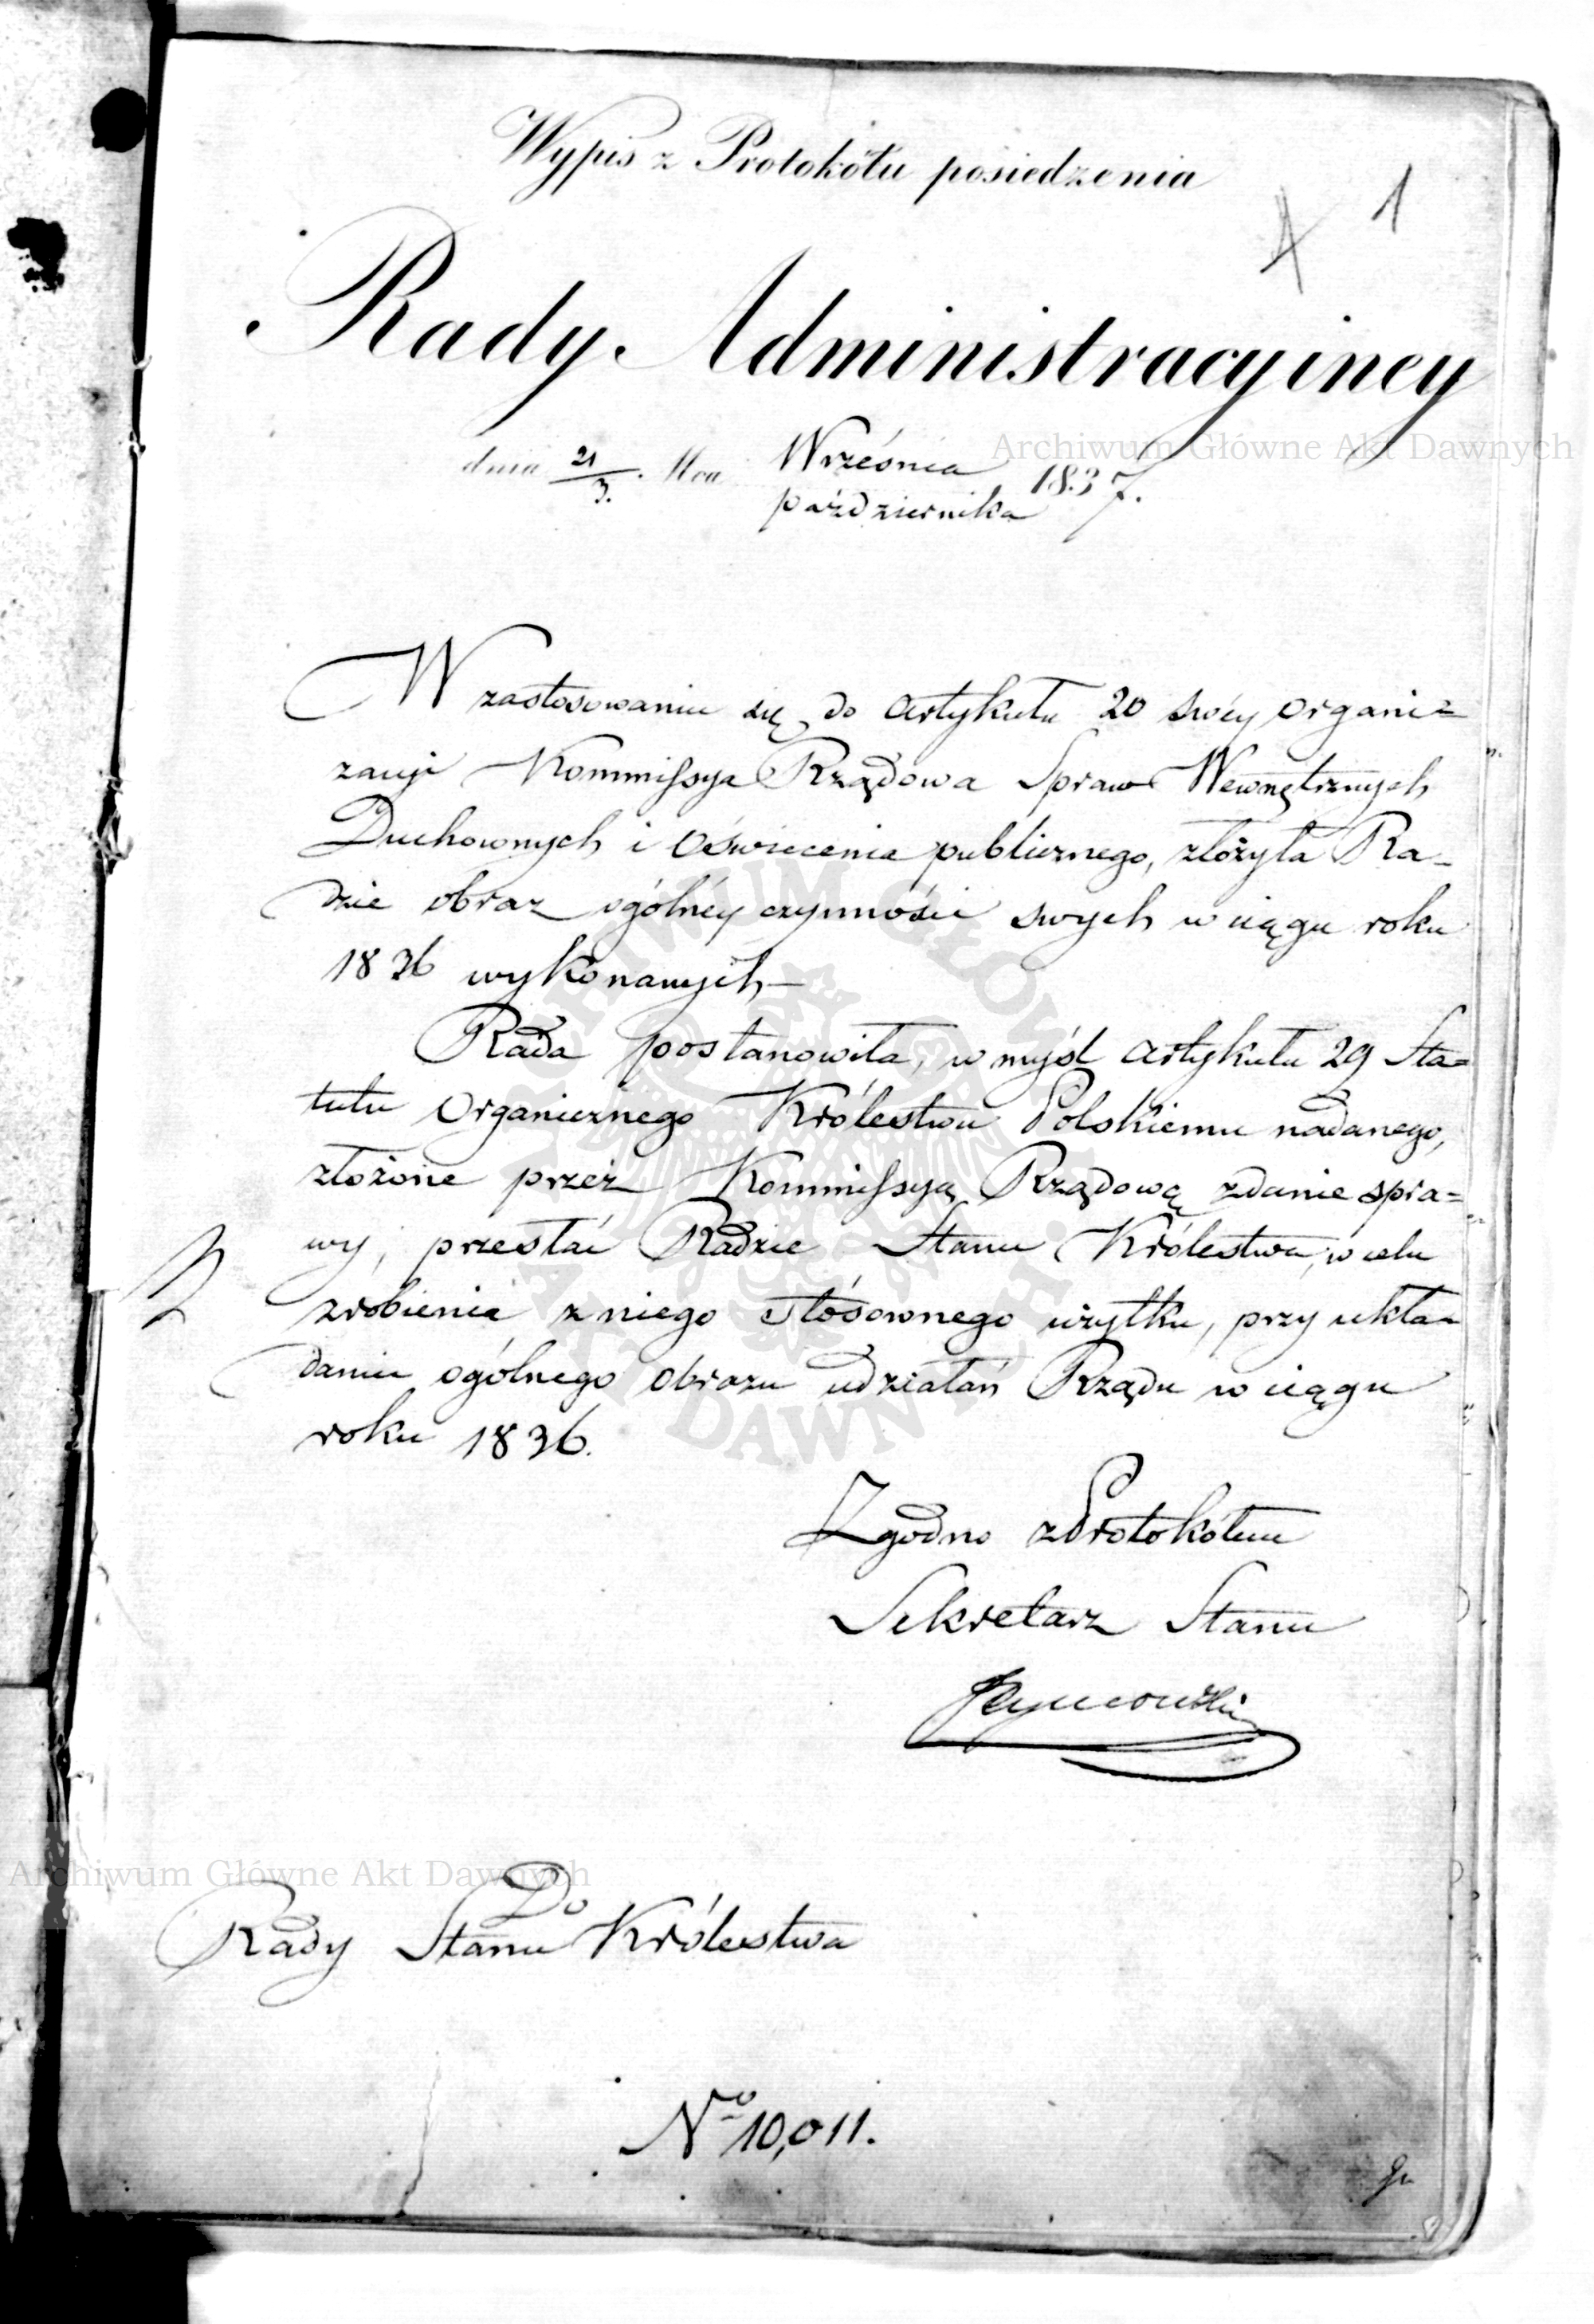 Wypis z Protokółu posiedzenia
1
Rady Administracyiney
dnia 21/3. Mca Września/października 1837.
W zastosowaniu się do artykułu 20 swéy organi=
zacyi Kommissya Rządowa Spraw Wewnętrznych
Duchownych i Oświecenia publicznego, złożyła Ra=
dzie obraz ogólnéy czynności swych w ciągu roku
1836 wykonanych –
Rada postanowiła, w myśl artykułu 29 Sta=
tutu Organicznego Królestwu Polskiemu nadanego,
złożone przez Kommissyą Rządową zdanie spra=
wy, przesłać Radzie Stanu Królestwa, w celu
zrobienia z niego stósownego użytku, przy ukła=
daniu ogólnego obrazu udziałań Rządu w ciągu
roku 1836.
Zgodno z Protokółem
Sekretarz Stanu
Do
Rady Stanu Królestwa
No 10,011.
Archiwum Główne Akt Dawnych
Archiwum Główne Akt Dawnych
ARCHIWUM GŁÓWNE AKT DAWNYCH